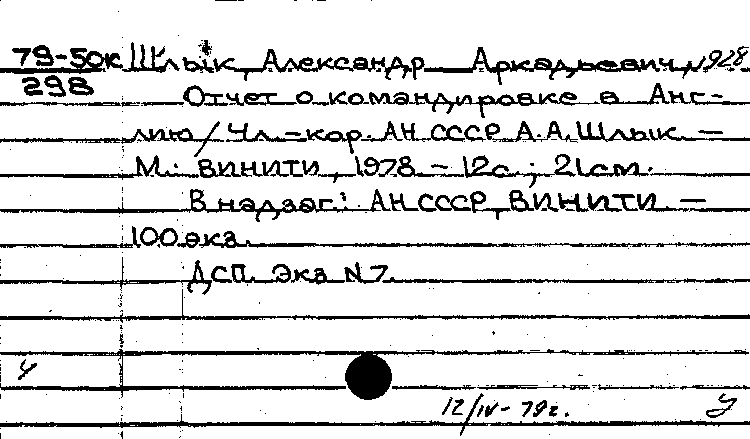 79-50к Шлык, Александр Аркадьевич, 1928
298 Отчет о командировке в Анг-
лию / Чл.-кор. АН СССР А.А. Шлык. —
М.: ВИНИТИ, 1978 - 12с.; 21см.
В надзаг.: АН СССР, ВИНИТИ. —
100 экз.
ДСП. Экз N 7.
У
12/IV-79г.